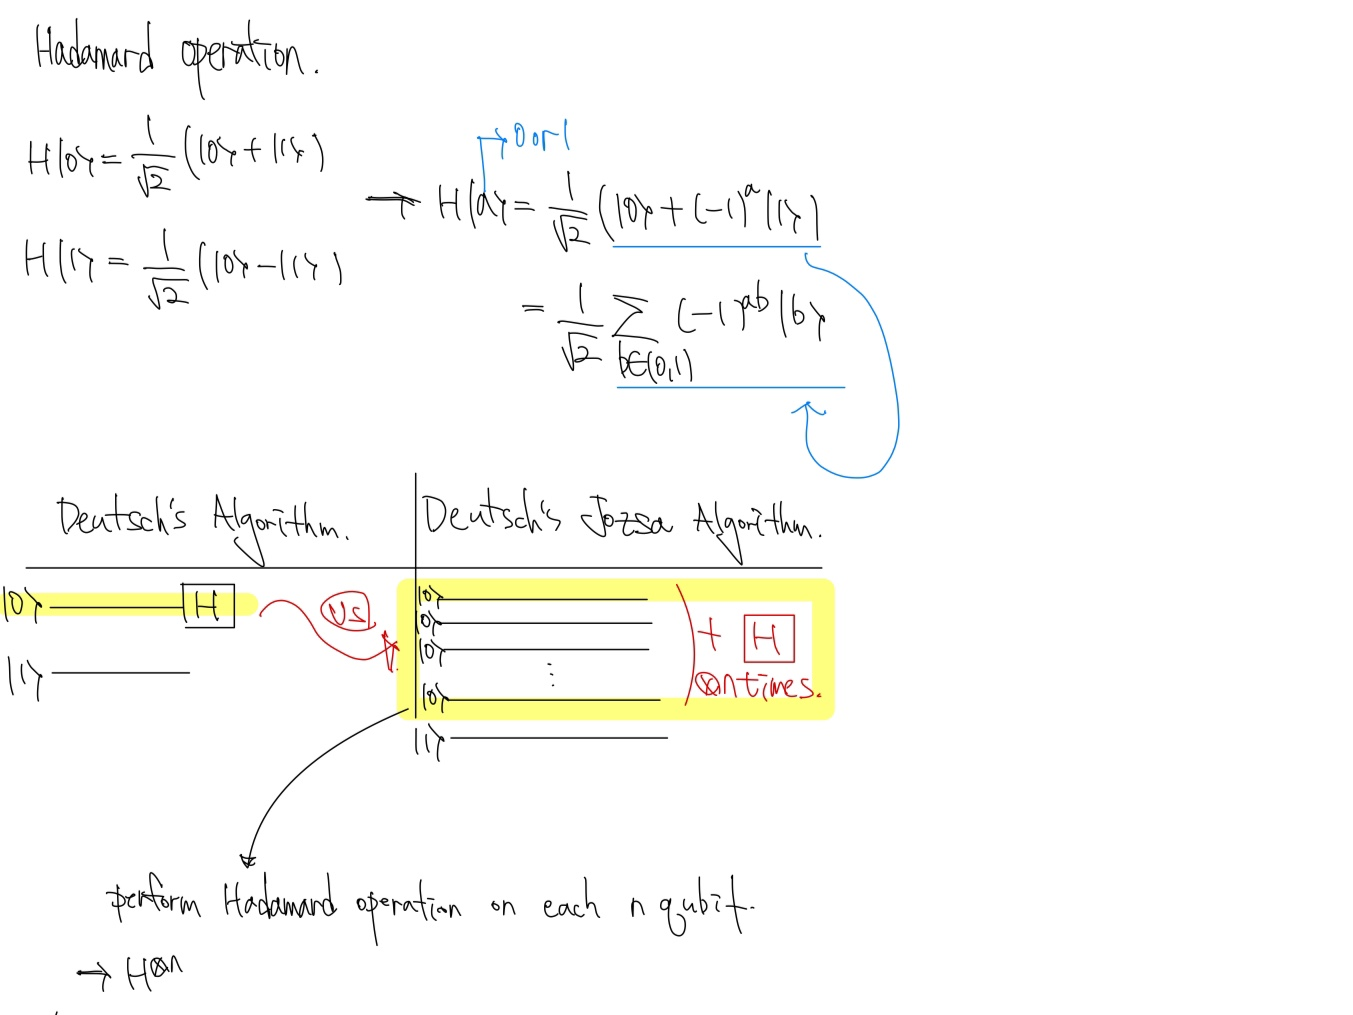 Hadamard operation.
H|0> = 1/√2 (|0> + |1>)
H|1> = 1/√2 (|0> - |1>)
0 or 1
→ H|a> = 1/√2 (|0> + (-1)^a |1>)
= 1/√2 Σ_{b∈(0,1)} (-1)^{ab} |b>
Deutsch's Algorithm.
|0> H
|1>
VS.
Deutsch's Jozsa Algorithm.
|0>
|0>
|0>
⋮
|0>
|1>
+ H
⊗n times.
perform Hadamard operation on each n qubit.
→ H⊗n